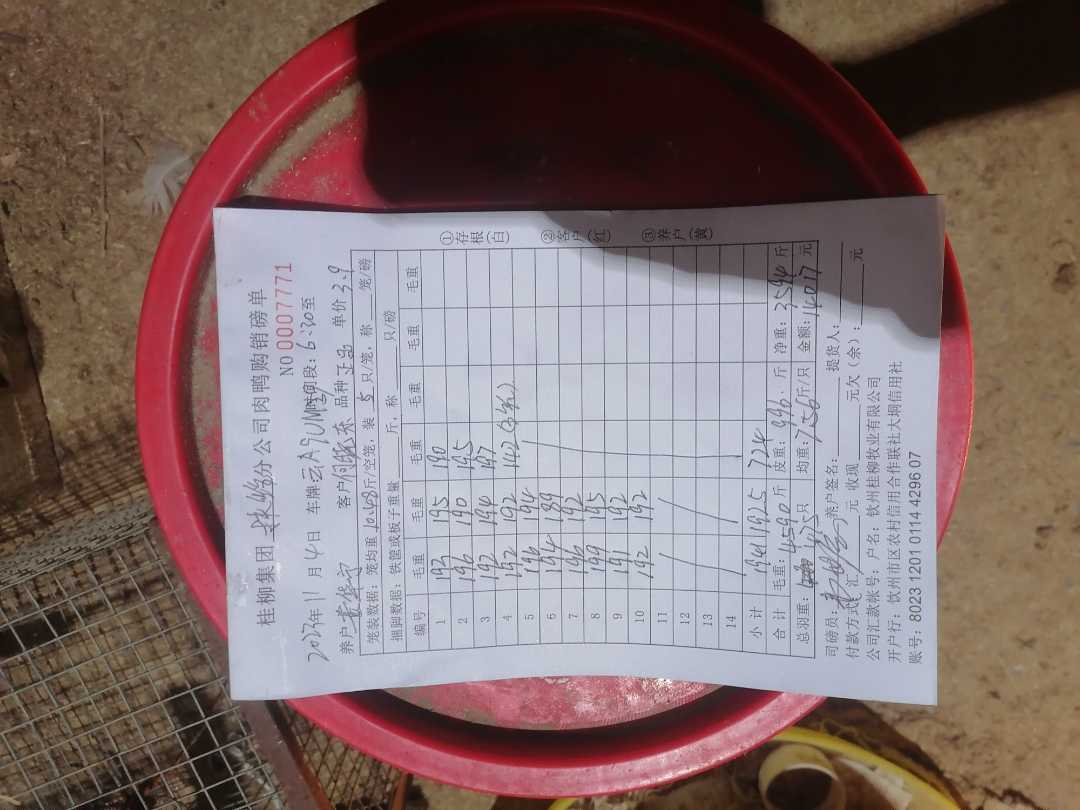 桂柳集团 分公司肉鸭购销磅单
NO 0007771
年11月4日 车牌云A9UM 时间段：6:30至
养户 客户 品种 单价3.9
笼装数据：笼均重10.48斤/空笼，装5只/笼，称 笼/磅
捆脚数据：铁筐或板子重量 斤，称 只/磅
编号 毛重 毛重 毛重 毛重 毛重
1 193 195 190
2 196 190 195
3 192 194 197
4 192 192 142
5 196 194
6 194 189
7 196 192
8 199 195
9 191 192
10 192 192
11
12
13
14
小计 1941 1925 724
合计 毛重：4590斤 皮重：996斤 净重：3594斤
总羽重：475只 均重：7.56斤/只 金额：14017元
司磅员： 养户签名： 提货人：
付款方式：汇 元 收现 元欠（余）： 元
公司汇款帐号：户名：钦州桂柳牧业有限公司
开户行：钦州市区农村信用合作联社大垌信用社
账号：8023 1201 0114 4296 07
①存根（白）
②客户（红）
③养户（黄）